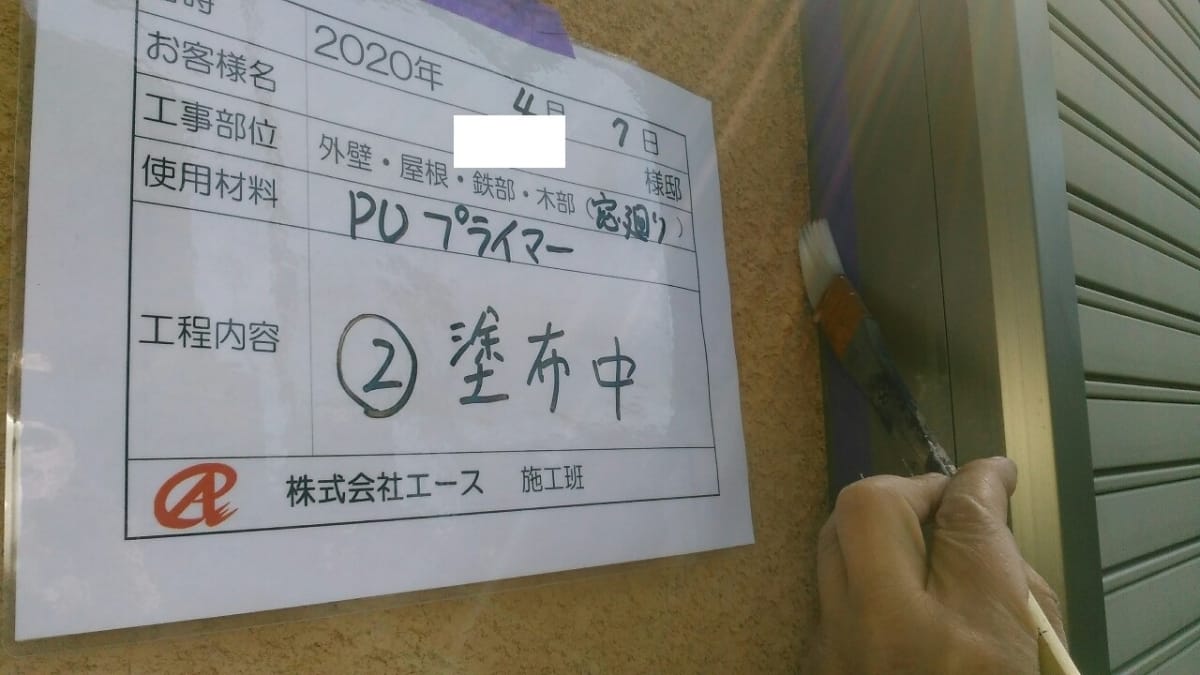 日時 2020年 4月 7日
お客様名 様邸
工事部位 外壁・屋根・鉄部・木部（窓廻り）
使用材料 PU プライマー
工程内容 ② 塗布中
株式会社エース 施工班